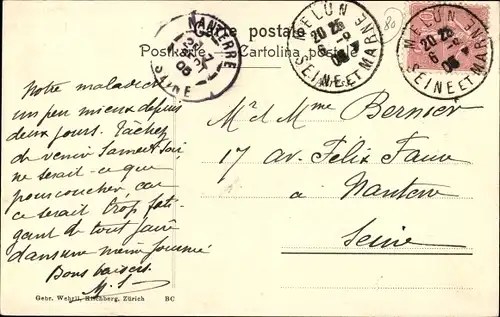 Carte postale
Postkarte
Cartolina postale
NANTERRE
SEINE
05
MELUN
20 25
6 -9
05
SEINE ET MARNE
MELUN
20 25
6 -9
05
SEINE ET MARNE
80
Notre malade va
un peu mieux depuis
deux jours. Tâchez
de venir Samedi soir,
ne serait-ce que
pour coucher, car
ce serait trop fati-
gant de tout faire
dans une même journée
Bons baisers.
M. S
Mr et Mme Bernier
17 av. Félix Faure
à Nanterre
Seine
Gebr. Wehrli, Kilchberg, Zürich BC